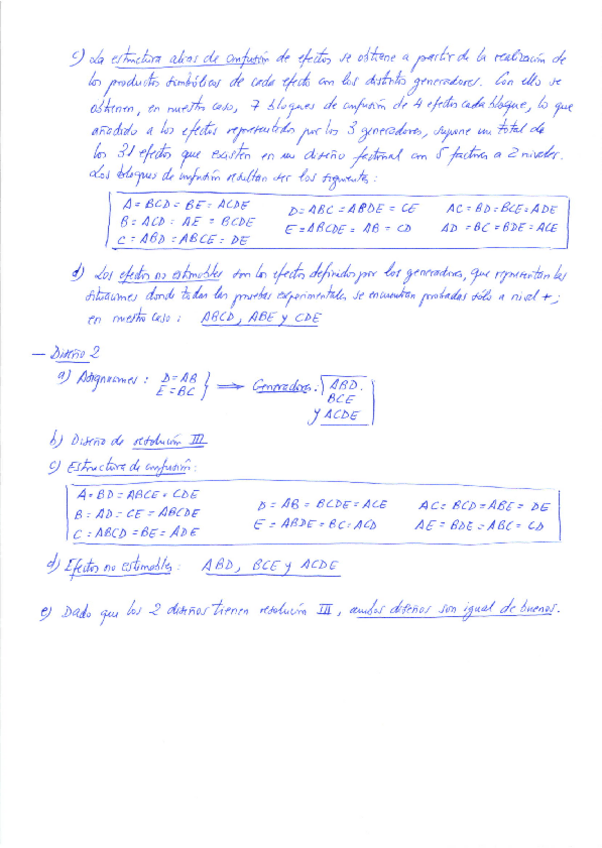 c) La estructura alias de confusión de efectos se obtiene a partir de la realización de
los productos simbólicos de cada efecto con los distintos generadores. Con ello se
obtienen, en nuestro caso, 7 bloques de confusión de 4 efectos cada bloque, lo que
añadido a los efectos representados por los 3 generadores, supone un total de
los 31 efectos que existen en un diseño factorial con 5 factores a 2 niveles.
Los bloques de confusión resultan ser los siguientes:
A = BCD = BE = ACDE
B = ACD = AE = BCDE
C = ABD = ABCE = DE
D = ABC = ABDE = CE
E = ABCDE = AB = CD
AC = BD = BCE = ADE
AD = BC = BDE = ACE
d) Los efectos no estimables son los efectos definidos por los generadores, que representan las
situaciones donde todas las pruebas experimentales se encuentran probadas sólo a nivel +;
en nuestro caso: ABCD, ABE y CDE
— Diseño 2
a) Asignaciones: D = AB
E = BC
⟹ Generadores: ABD.
BCE
y ACDE
b) Diseño de resolución III
c) Estructura de confusión:
A = BD = ABCE = CDE
B = AD = CE = ABCDE
C = ABCD = BE = ADE
D = AB = BCDE = ACE
E = ABDE = BC = ACD
AC = BCD = ABE = DE
AE = BDE = ABC = CD
d) Efectos no estimables: ABD, BCE y ACDE
e) Dado que los 2 diseños tienen resolución III, ambos diseños son igual de buenos.